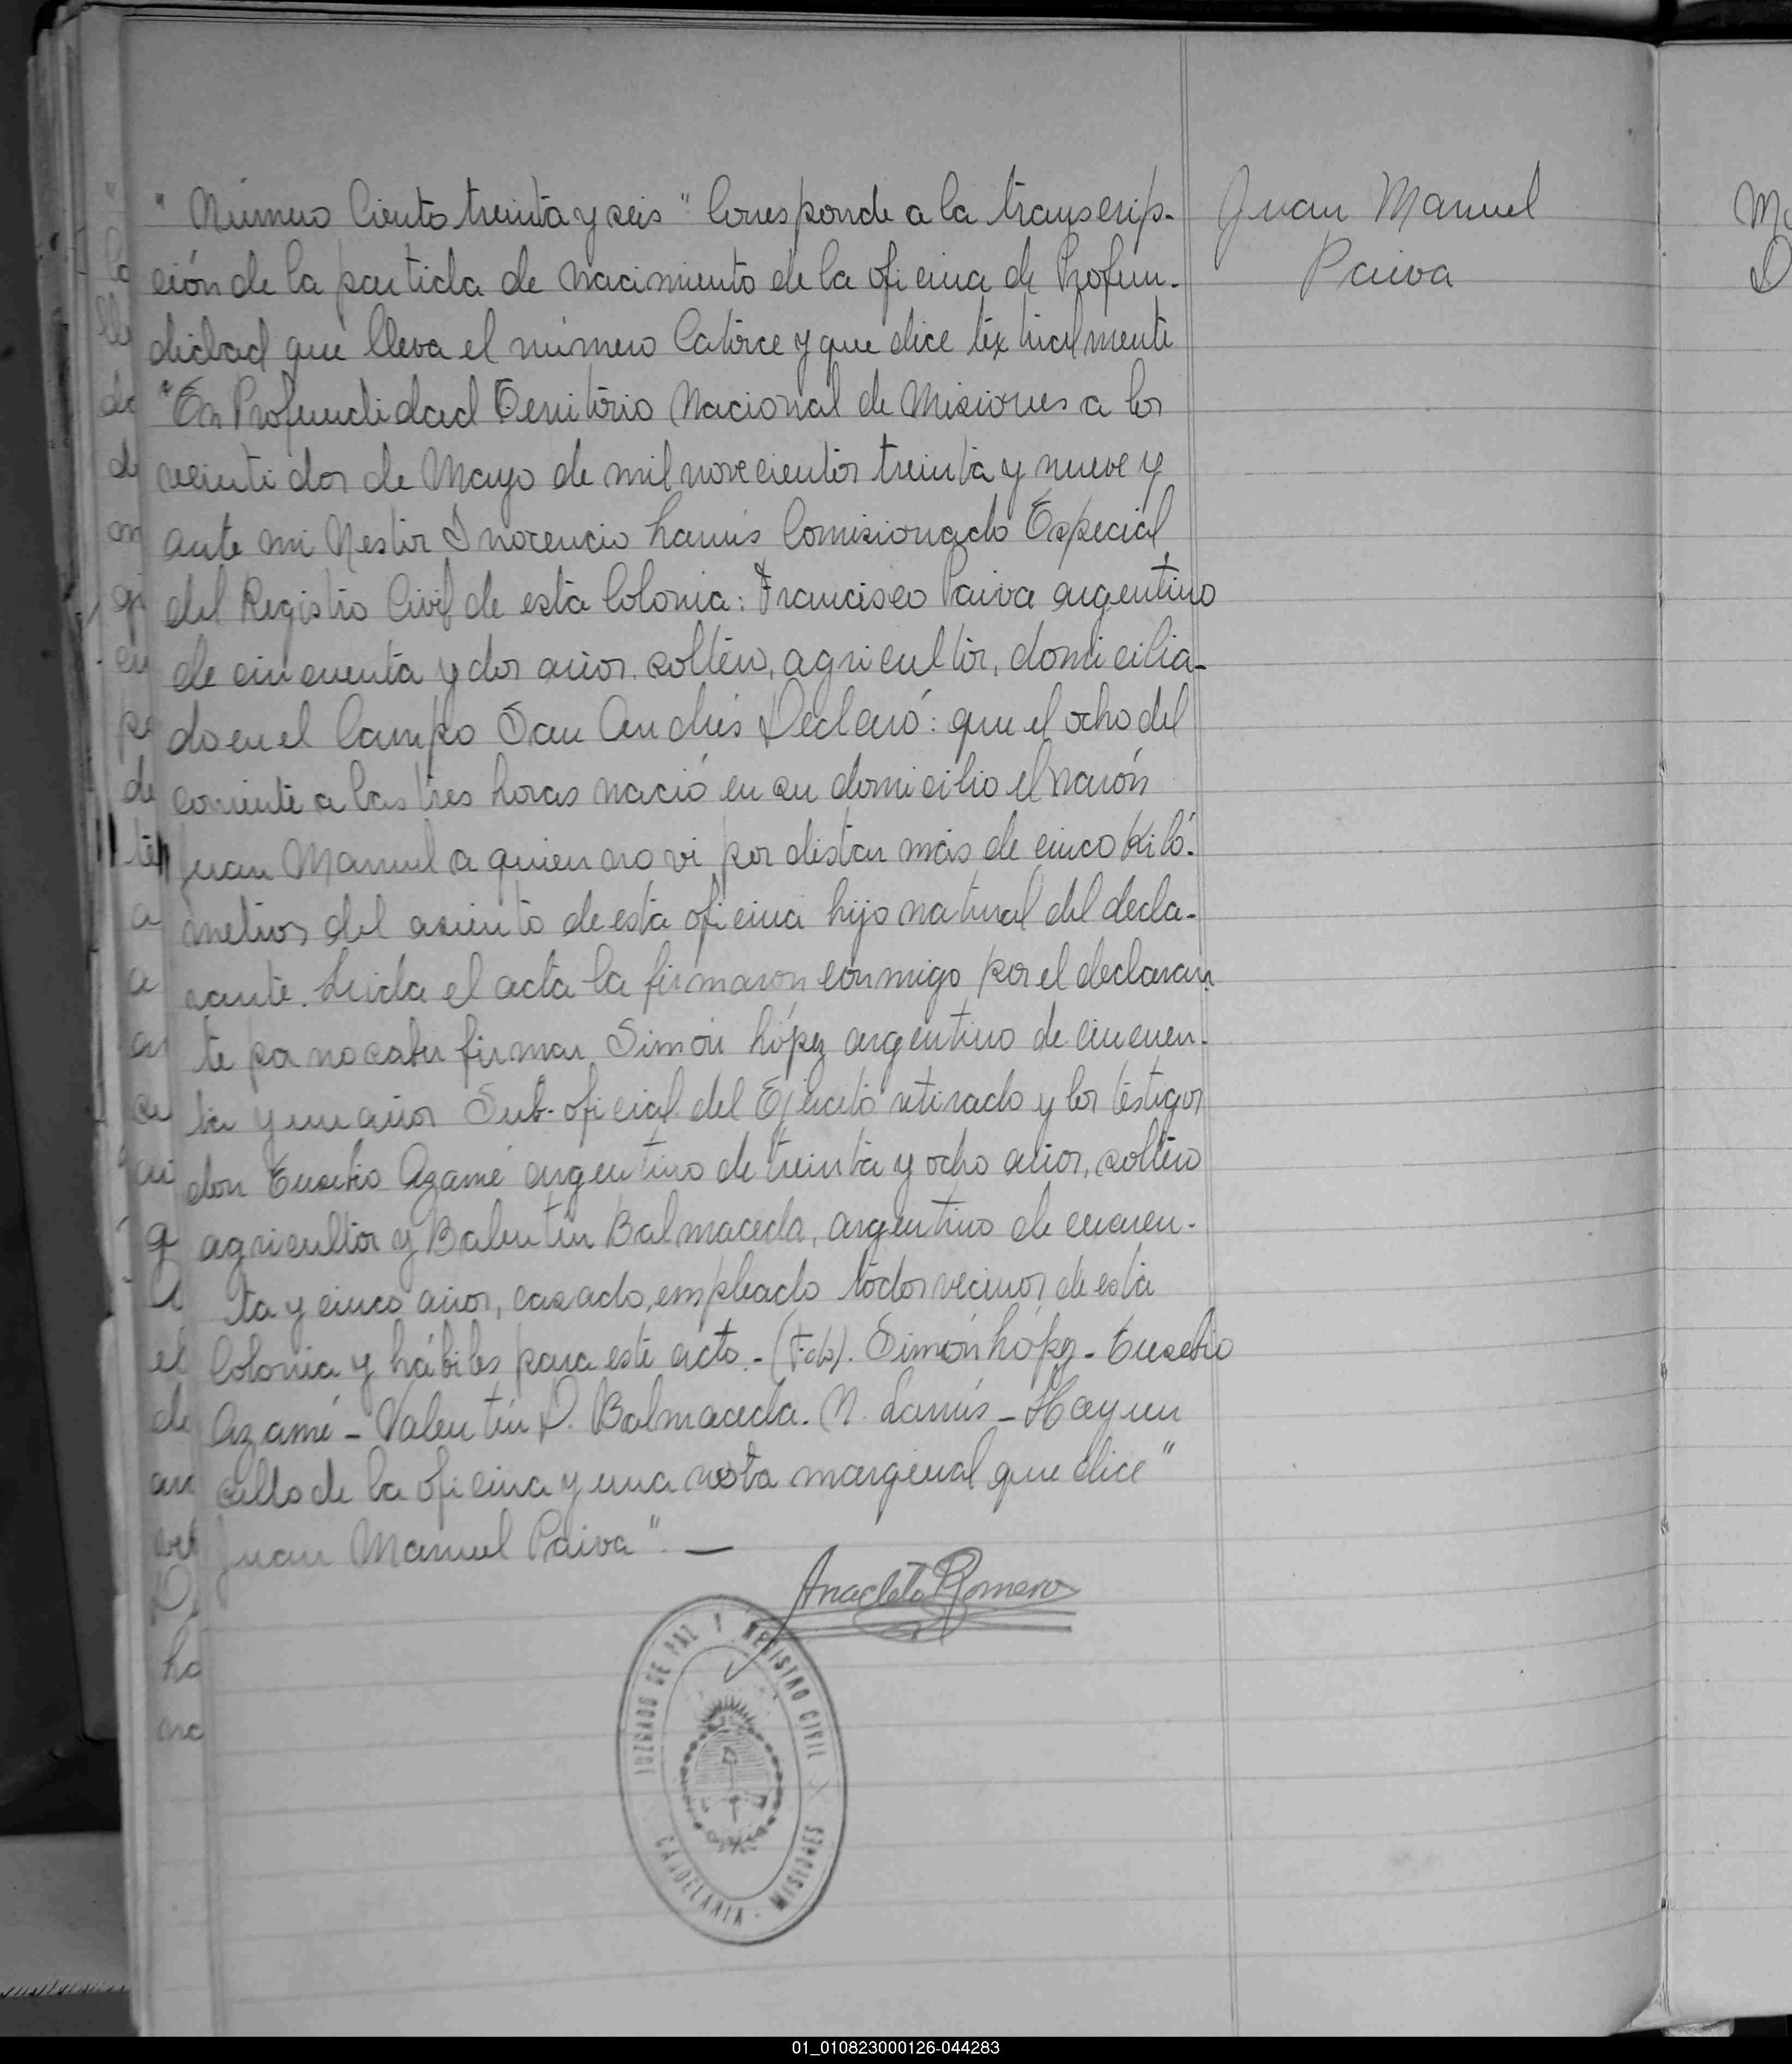 " Número Ciento treinta y seis " Corresponde a la transcrip-
ción de la partida de nacimiento de la oficina de Profun-
didad que lleva el número Catorce y que dice textualmente
"En Profundidad Territorio Nacional de Misiones a los
veinti dos de Mayo de mil novecientos treinta y nueve y
ante mi Nestor Inocencio Lanús Comisionado Especial
del Registro Civil de esta Colonia: Francisco Paiva argentino
de cincuenta y dos años, soltero, agricultor, domicilia-
do en el Campo San Andrés Declaró: que el ocho del
corriente a las tres horas nació en su domicilio el varón
Juan Manuel a quien no vi por distar más de cinco Kiló-
metros del asiento de esta oficina hijo natural del decla-
rante. Leida el acta la firmaron conmigo por el declaran-
te por no saber firmar Simón López argentino de cincuen-
ta y un años Sub-oficial del Ejército retirado y los testigos
don Eusebio Azamé argentino de treinta y ocho años, soltero
agricultor y Balentín Balmaceda, argentino de cuaren-
ta y cinco años, casado, empleado todos vecinos de esta
Colonia y hábiles para este acto.- (Fdo). Simón López - Eusebio
Azamé - Valentín D. Balmaceda. N. Lanús - Hay un
sello de la oficina y una nota marginal que dice "
Juan Manuel Paiva". —
Juan Manuel
Paiva
Anacleto Romero
JUZGADO DE PAZ Y REGISTRO CIVIL
CANDELARIA - MISIONES
01_010823000126-044283